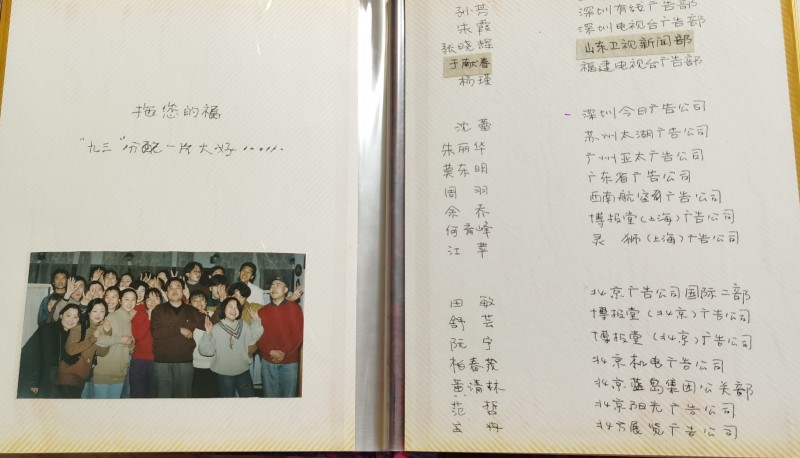 拖您的福
"九三"分配一片大好……
孙芳 深圳有线广告部
朱霞 深圳电视台广告部
张晓辉 山东卫视新闻部
于献春 福建电视台广告部
杨瑾
沈蕾 深圳今日广告公司
朱丽华 苏州太湖广告公司
莫东明 广州亚太广告公司
周羽 广东省广告公司
余乔 西南航空广告公司
何香峰 博报堂(上海)广告公司
江苹 灵狮(上海)广告公司
田敏 北京广告公司国际二部
舒芸 博报堂(北京)广告公司
阮宁 博报堂(北京)广告公司
柏春茂 北京机电广告公司
黄清林 北京蓝岛集团公关部
范哲 北京阳光广告公司
北方展览广告公司